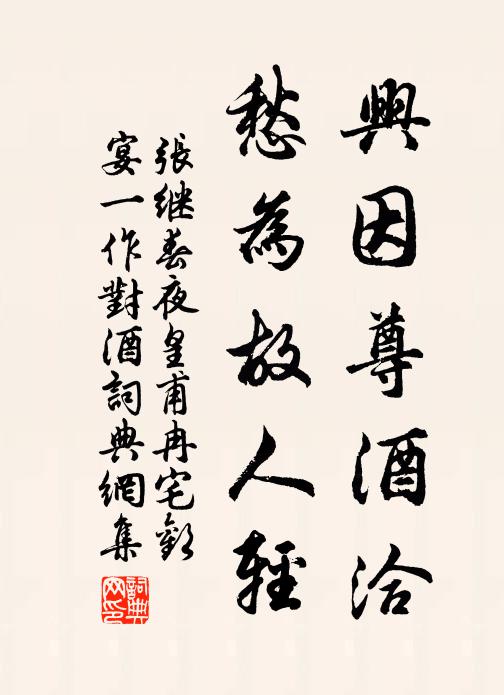 興因尊酒洽
愁為故人輕
張继春夜皇甫冉宅歡
宴一作對酒詞典網集
詞典网印